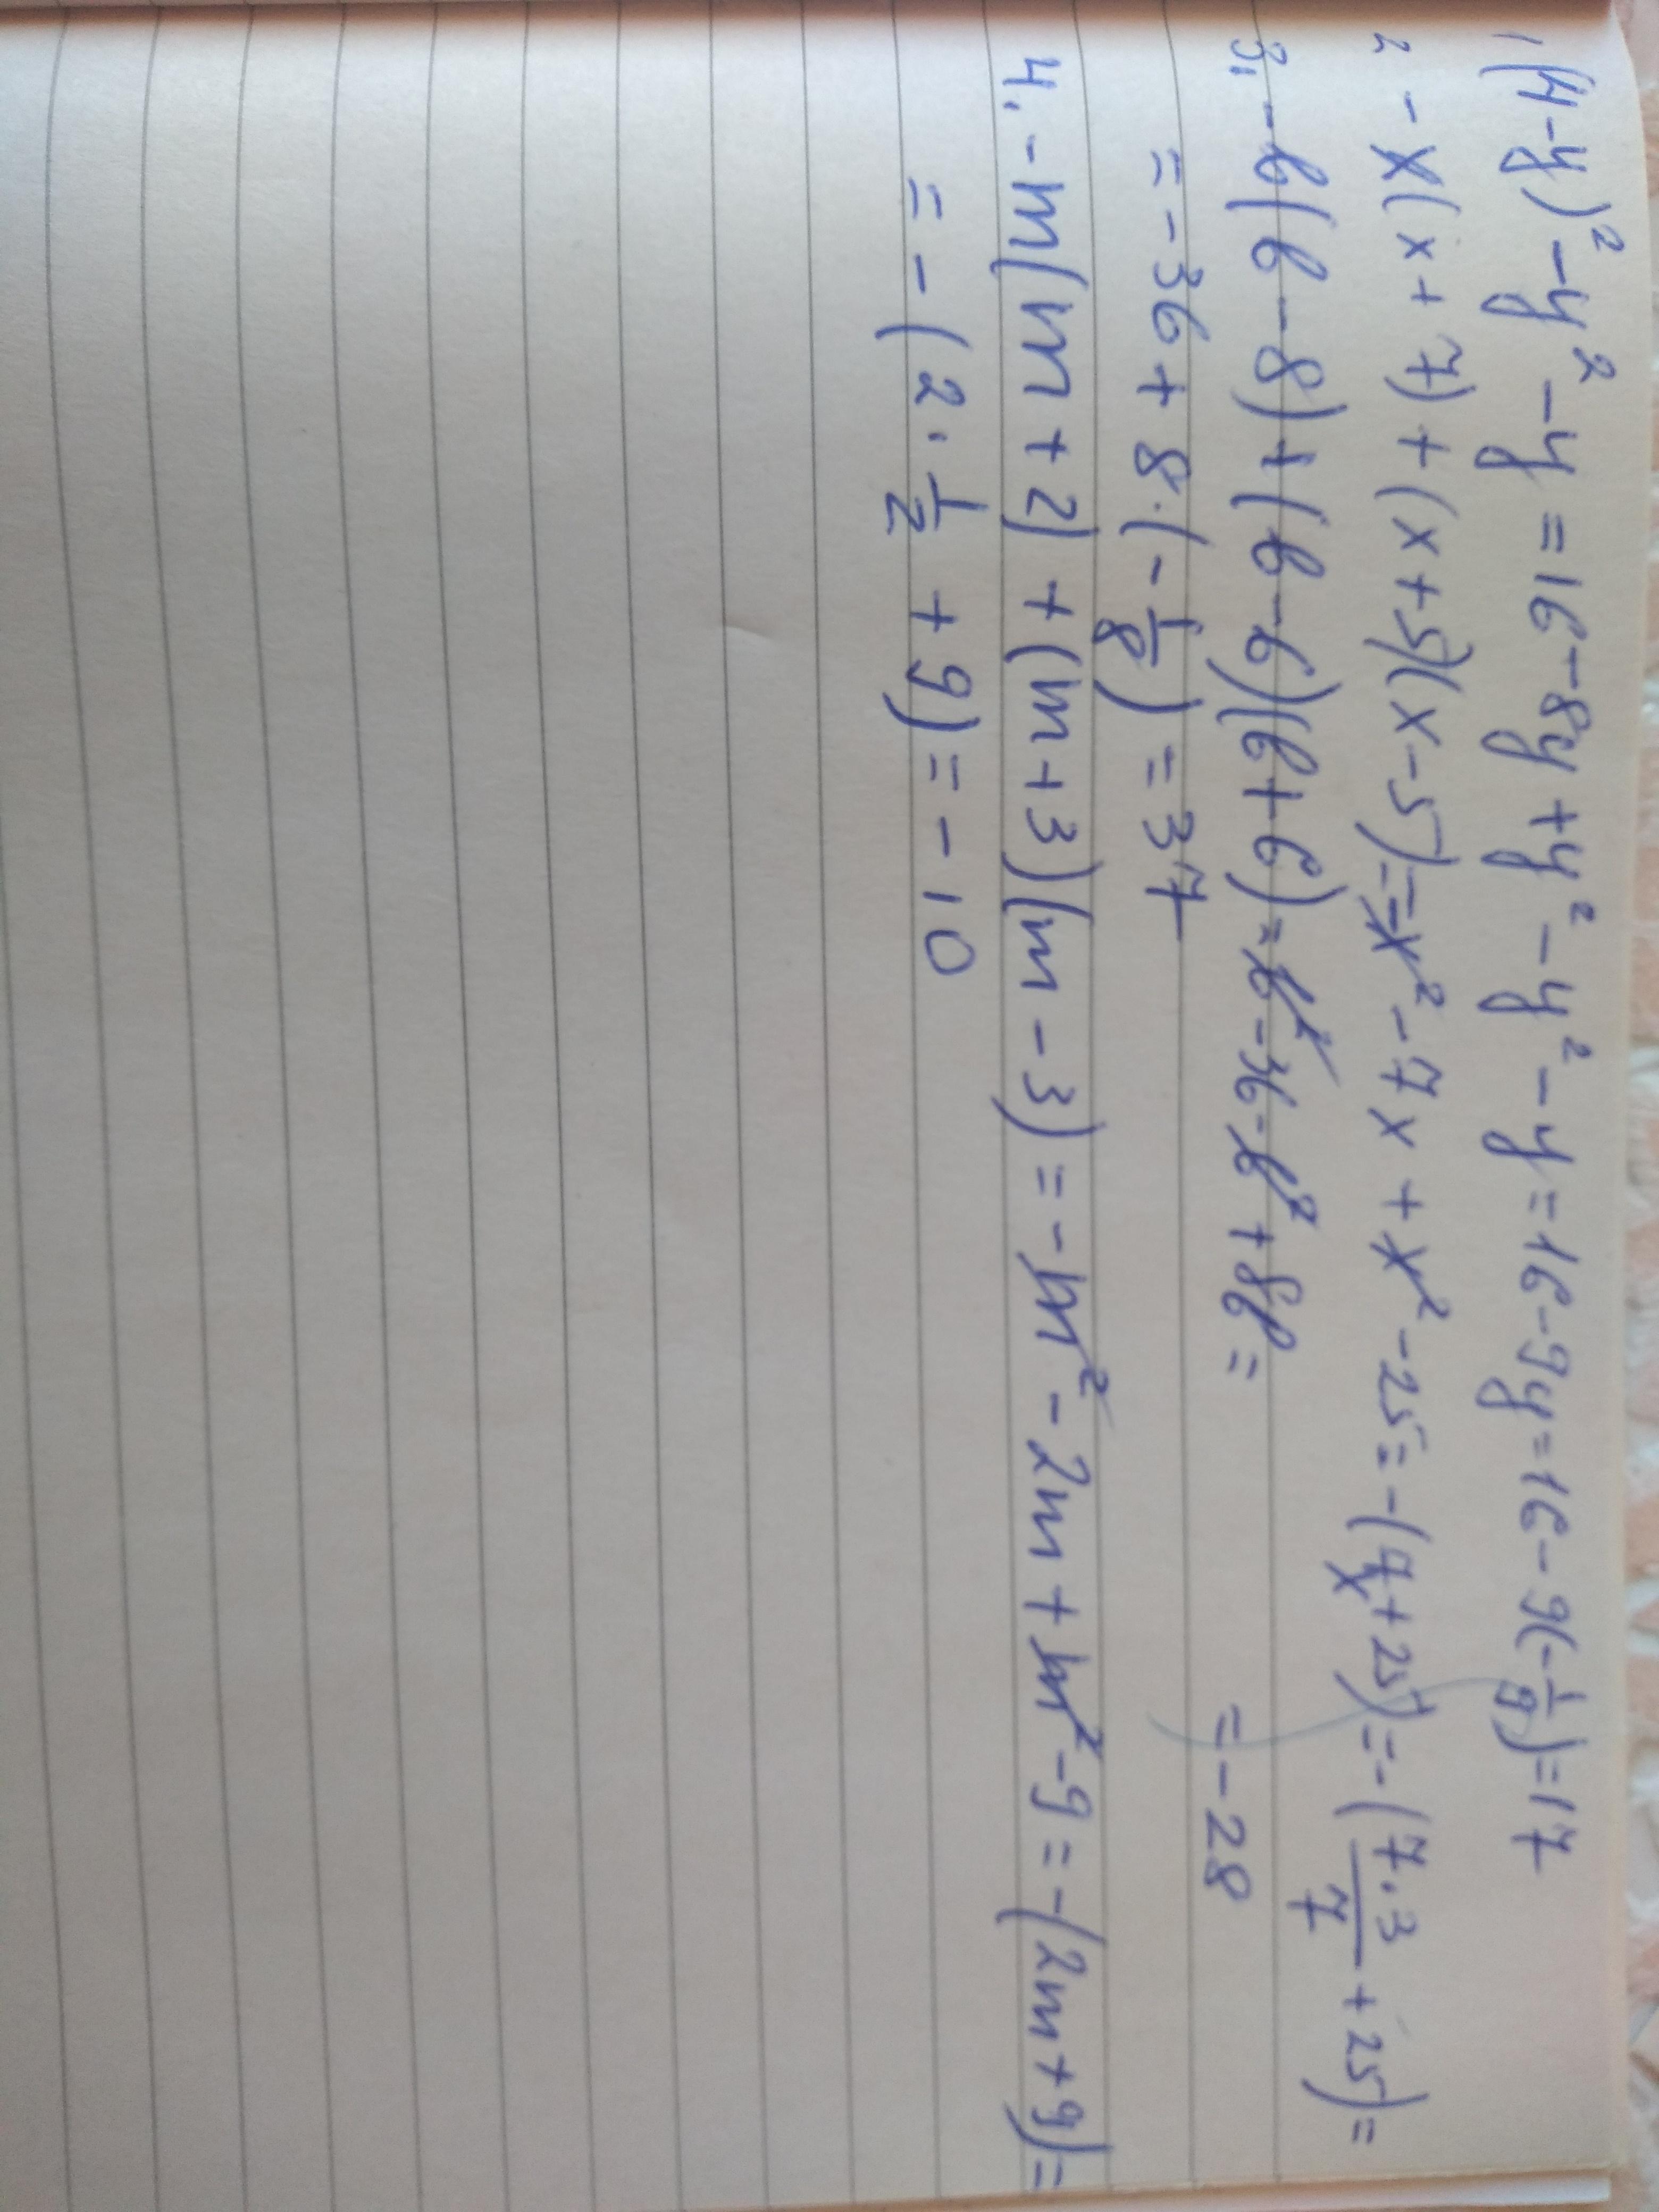 1 (4-y)² - y² - y = 16 - 8y + y² - y² - y = 16 - 9y = 16 - 9(-1/9) = 17
2. - x(x + 7) + (x + 5)(x - 5) = -x² - 7x + x² - 25 = -(7x + 25) = -(7·3/7 + 25) =
= - 28
3. - b(b - 8) + (b - 6)(b + 6) = b² - 36 - b² + 8b =
= - 36 + 8·(-1/8) = 37
4. - m(m + 2) + (m + 3)(m - 3) = - m² - 2m + m² - 9 = -(2m + 9) =
= - (2·1/2 + 9) = - 10